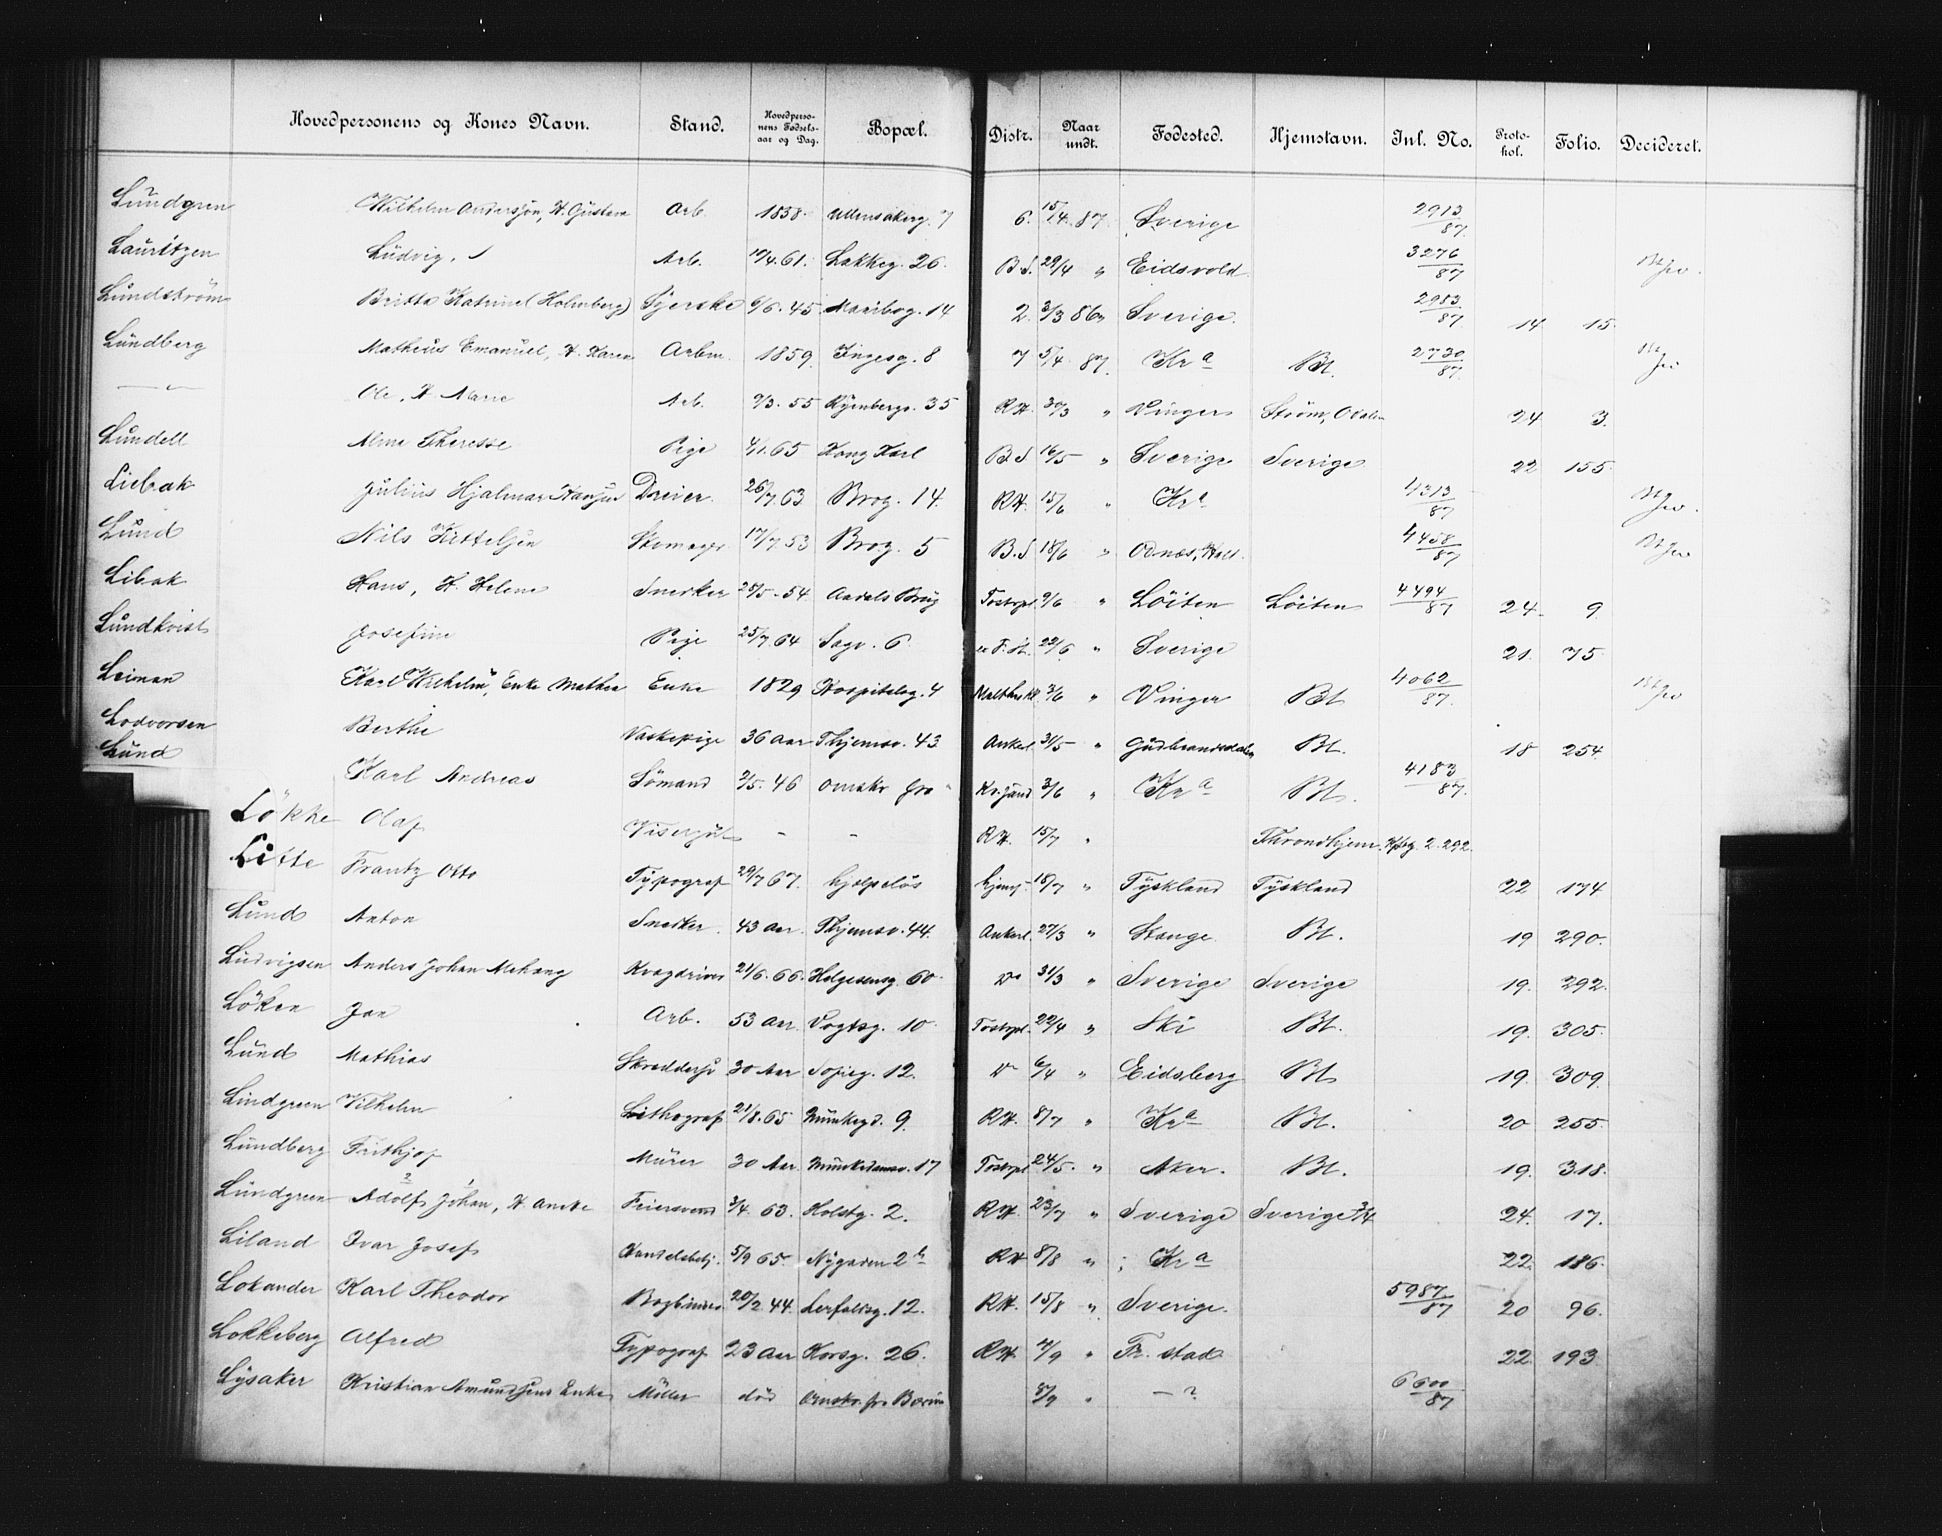 Hovedpersonens og Kones Navn. Stand. Hovedperso-nens Fødsels-aar og Dag. Bopæl. Distr. Naar undt. Fødested. Hjemstavn. Inl. No. Proto-kol. Folio. Decideret.
Lundgren Wilhelm Andersson, H. Gustava Arb. 1858 Ullensakerg. 7 6. 15/4 87 Sverige 2913/87
Lauritzen Ludvig Arb. 61. Lakkeg. 26. B.S. 29/4 " Eidsvold 3276/87
Lundström Britta Katrine (Holmberg) Syerske 6/6. 45 Maribog. 14 2. 3/3 86 Sverige. 2983/87 14 15.
Lundberg Matheus Emanuel, H. Karen Arbm. 1859. Ingesg. 8 7 5/4 87. Kra Bt. 2730/87
— " — Ole, H. Marie Arb. 9/3. 55 35 RH. 30/3 " Vinger Strøm, Odalen 24 3.
Lundell Alma Theresse Pige 4/1. 65 Kong Karl B.S 16/5 " Sverige Sverige 22 155.
Liebak Julius Hjalmar Dreier. 26/7 63 Brog. 14. RH. 15/6 " Kra 4313/87
Lund Nils Kittelsen Skomager 17/7. 53 Brog. 5 B.S 18/6 " Odnæs, 4458/87
Libak Hans, H. Helene Snedker 28/5-54 Aadals Brug Tostrpl. 9/6 " Löiten Löiten 4494/87 24 9.
Lundkvist Josefine Pige 25/7 64 Sagv. 6 22/6 " Sverige 21. 75.
Leiman Karl Wilhelm, Enke Mathea Enke 1829 Hospitalsg. 4 3/6 " Vinger Bt 4062/87.
Lodvorsen Berthe Vaskepige 36 Aar Thjemsv. 43 Ankerl. 31/5 " Gudbrandsdalen Bt. 18 254.
Lund Karl Andreas Sömand 2/5. 46 omskr. fra 3/6 " Kra Bt. 4183/87.
Lökke Olaf Visergut - - RH. 15/7 " Throndhjem. 2. 292.
Litte Frantz Otto Typograf 29/7 67. hjælpelös 18/7 " Tyskland Tyskland 22 174
Lund Anton Snedker. 43 Aar. Thjemsv. 44. Ankerl. 27/3 " Stange Bt. 19 290.
Ludvigsen Anders Johan Kvægdriver 21/6. 66. Helgesensg. 60. Do 31/3 " Sverige Sverige 19. 292.
Löken Jon Arb. 53 Aar. Vogtsg. 10. Tostrpl. 22/4 " Ski Bt. 19. 305.
Lund Mathias Skreddersv 30 Aar Sofieg. 12. Do 6/4 " Eidsberg Bt 19. 309.
Lindgreen Vilhelm Lithograf 21/8. 65 Munkegd. 9. RH. 8/7 " Kra Bt. 20 255.
Lundberg Frithjof Murer 30 Aar. Munkedamsv. 17 Tostrpl 24/5. " Aker. Bt. 19. 318.
Lundgreen Adolf Johan, H. Feiersvend 3/4. 63. Holstg. 2. RH. 23/7 " Sverige Sverige 3/4 24. 17.
Liland Ivar Josef Handelsbetj. 5/9 65. Nygaden 2 b RH 8/8 " Kra 22. 186.
Lokander Karl Theodor Bogbinder 20/2 44. Lerfaldsg. 12. RH. 15/8 " Sverige. 5987/87 20 96.
Lokkeberg Alfred Typograf 23 Aar Korsg. 26. RH. 7/9 " Fr. stad 22. 193.
Lysaker Kristian Amundsens Enke Möller död Omskr. fra Bærum 8/9 " — ? 6600/87